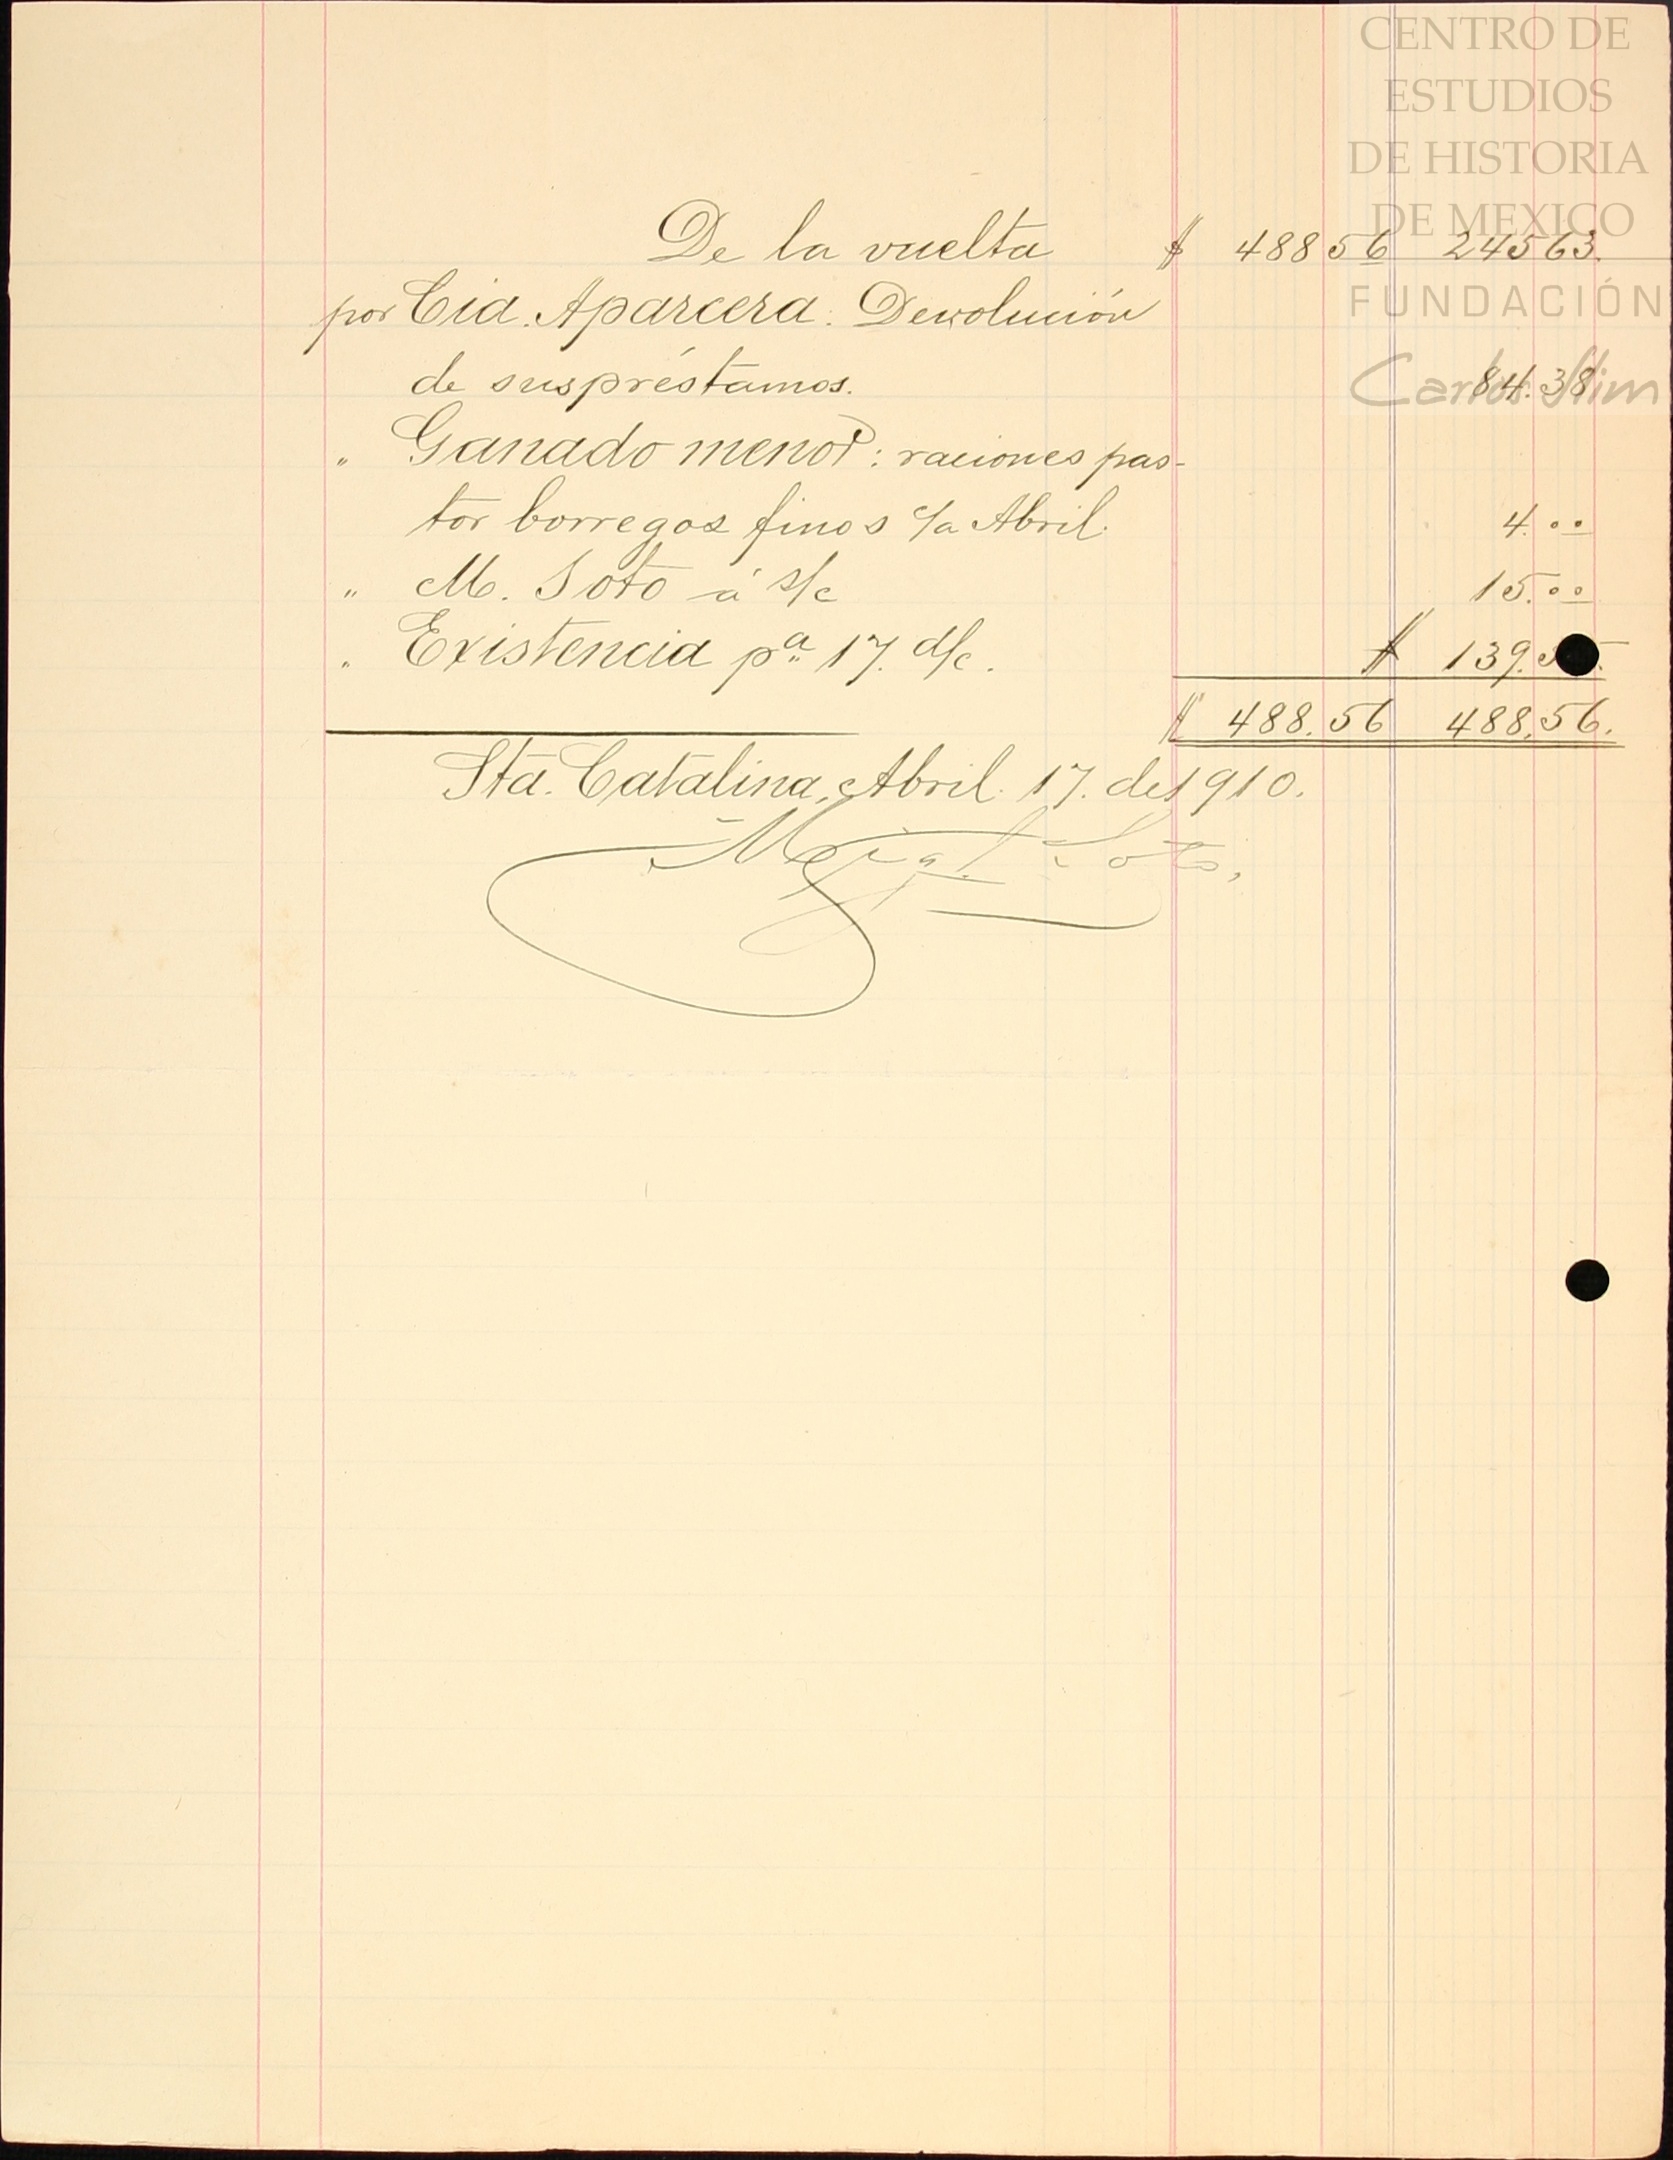 CENTRO DE
ESTUDIOS
DE HISTORIA
DE MEXICO
FUNDACIÓN
Carlos Slim
De la vuelta $ 488 56 245 63.
por Cia. Aparcera. Devolución
de sus préstamos. 84.38
" Ganado menor: raciones pas-
tor borregos finos c/a Abril. 4.00
" M. Soto á s/c 15.00
" Existencia pa. 17. d/c. $ 139.
$ 488.56 488.56.
Sta. Catalina, Abril. 17. de 1910.
Migl. Soto,